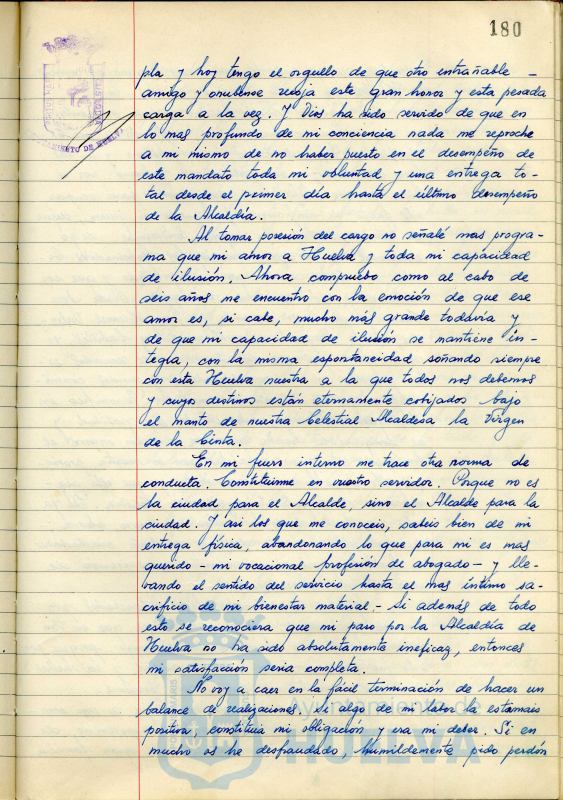 180
pla y hoy tengo el orgullo de que otro entrañable -
amigo y onubense recoja este gran honor y esta pesada
carga a la vez. Y Dios ha sido servido de que en
lo mas profundo de mi conciencia nada me reproche
a mi mismo de no haber puesto en el desempeño de
este mandato toda mi voluntad y una entrega to-
tal desde el primer día hasta el último desempeño
de la Alcaldía.
Al tomar posesión del cargo no señalé mas progra-
ma que mi amor a Huelva y toda mi capacidad
de ilusión. Ahora compruebo como al cabo de
seis años me encuentro con la emoción de que ese
amor es, si cabe, mucho más grande todavía y
de que mi capacidad de ilusión se mantiene ín-
tegra, con la misma espontaneidad soñando siempre
con esta Huelva nuestra a la que todos nos debemos
y cuyos destinos están eternamente cobijados bajo
el manto de nuestra Celestial Alcaldesa la Virgen
de la Cinta.
En mi fuero interno me trace otra norma de
conducta. Constituirme en vuestro servidor. Porque no es
la ciudad para el Alcalde, sino el Alcalde para la
ciudad. Y asi los que me conoceis, sabeis bien de mi
entrega física, abandonando lo que para mi es mas
querido - mi vocacional profesión de abogado - y lle-
vando el sentido del servicio hasta el mas íntimo sa-
crificio de mi bienestar material - Si además de todo
esto se reconociera que mi paso por la Alcaldía de
Huelva no ha sido absolutamente ineficaz, entonces
mi satisfacción seria completa.
No voy a caer en la fácil terminación de hacer un
balance de realizaciones. Si algo de mi labor la estimais
positiva, constituia mi obligación y era mi deber. Si en
mucho os he desfraudado, humildemente pido perdón
AYUNTAMIENTO DE HUELVA
Ayuntamiento de
HUELVA